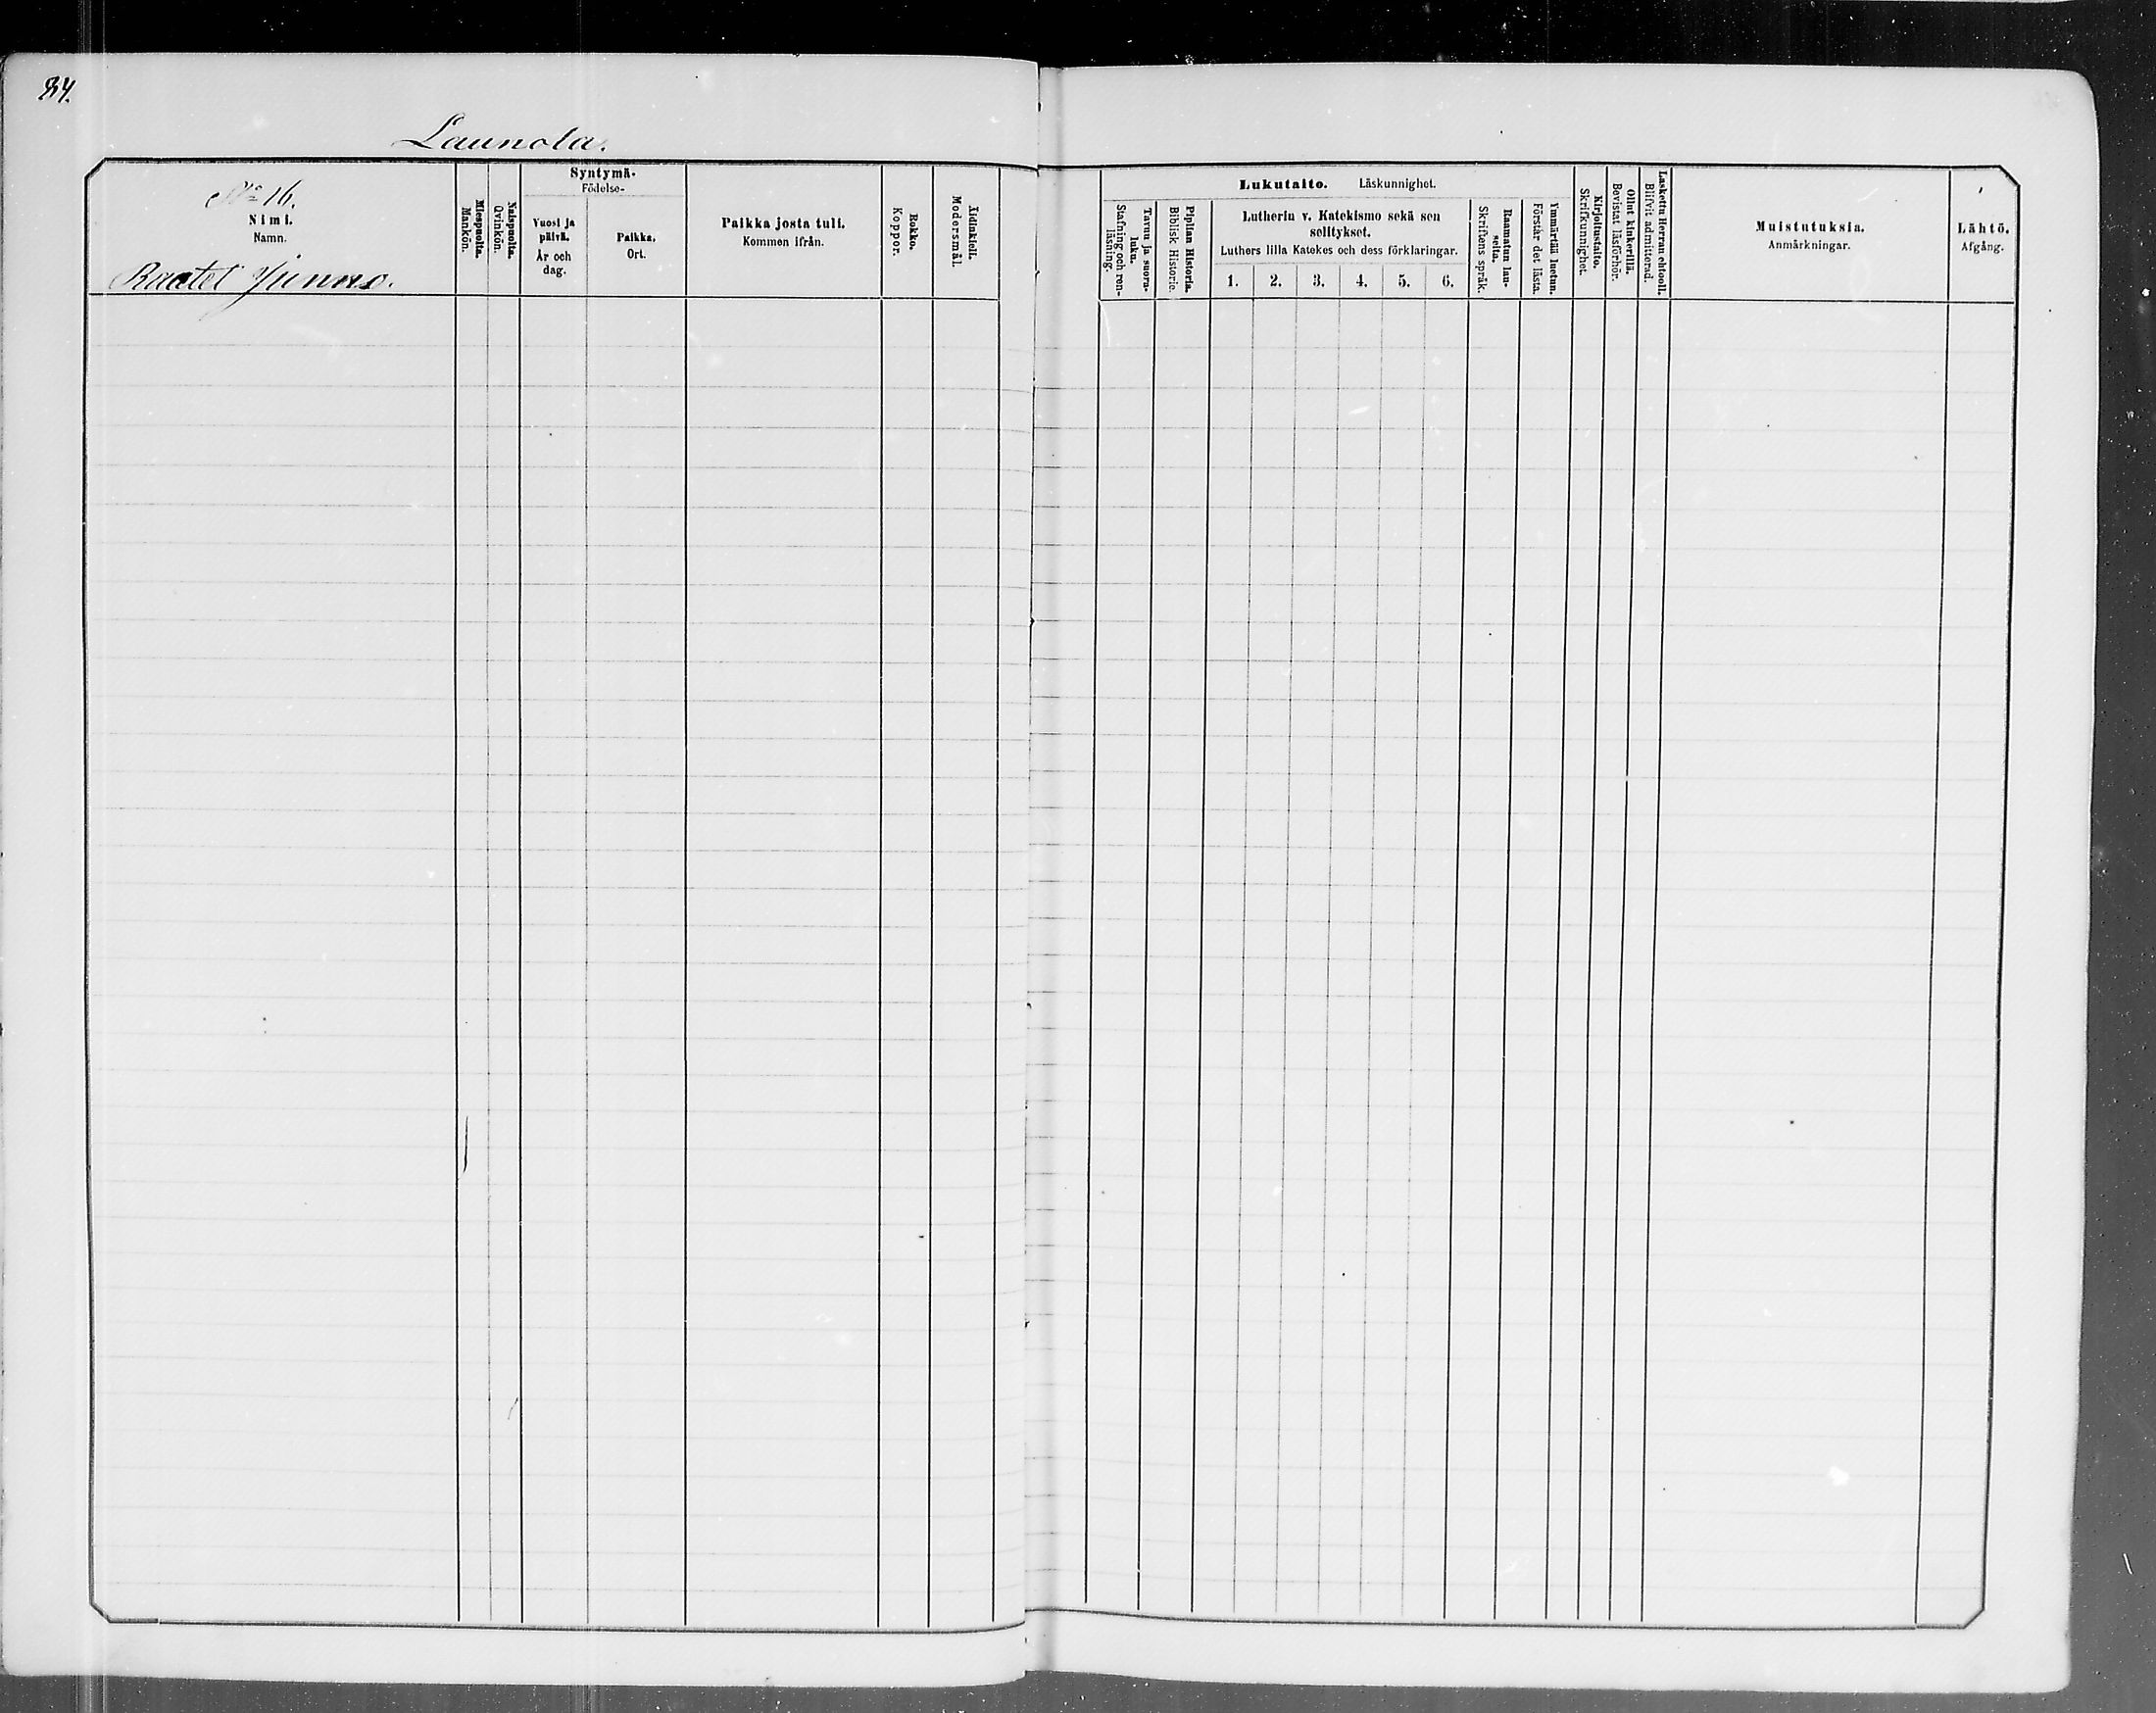 84.
Launola.
No 16.
Nimi.
Namn.
Miespuolta.
Mankön.
Naispuolta.
Qvinkön.
Syntymä-
Födelse-
Vuosi ja
päivä.
År och
dag.
Paikka.
Ort.
Paikka josta tuli.
Kommen ifrån.
Rokko.
Koppor.
Äidinkieli.
Modersmål.
Lukutaito. Läskunnighet.
Tavuu ja suora-
luku.
Stafning och ren-
läsning.
Piplian Historia.
Biblisk Historie.
Lutherin v. Katekismo sekä sen
selitykset.
Luthers lilla Katekes och dess förklaringar.
1. 2. 3. 4. 5. 6.
Raamatun lau-
seita.
Skriftens språk.
Ymmärtää luetun.
Förstår det lästa.
Kirjoitustaito.
Skrifkunnighet.
Ollut kinkerillä.
Bevistat läsförhör.
Laskettu Herran ehtooll.
Blifvit admitterad.
Muistutuksia.
Anmärkningar.
Lähtö.
Afgång.